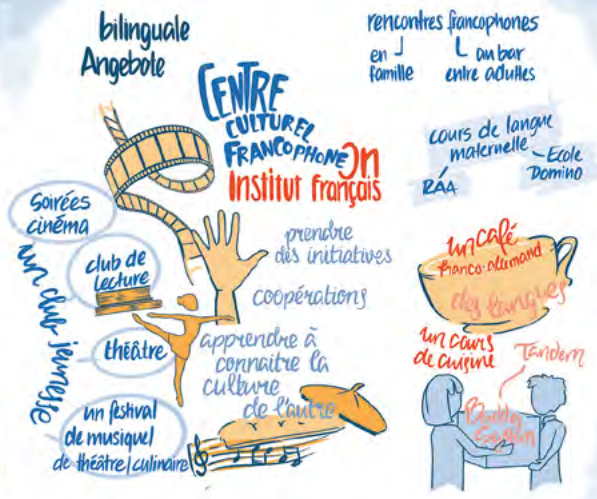 bilinguale
Angebote
rencontres francophones
en
famille
au bar
entre adultes
CENTRE
CULTUREL
FRANCOPHONE
Institut français
cours de langue
maternelle
RAA
Ecole
Domino
Soirées
cinéma
club de
lecture
théâtre
un festival
de musique/
de théâtre/culinaire
un club jeunesse
prendre
des initiatives
coopérations
apprendre à
connaitre la
culture
de l'autre
un café
franco-allemand
des langues
un cours
de cuisine
Tandem
Buddy